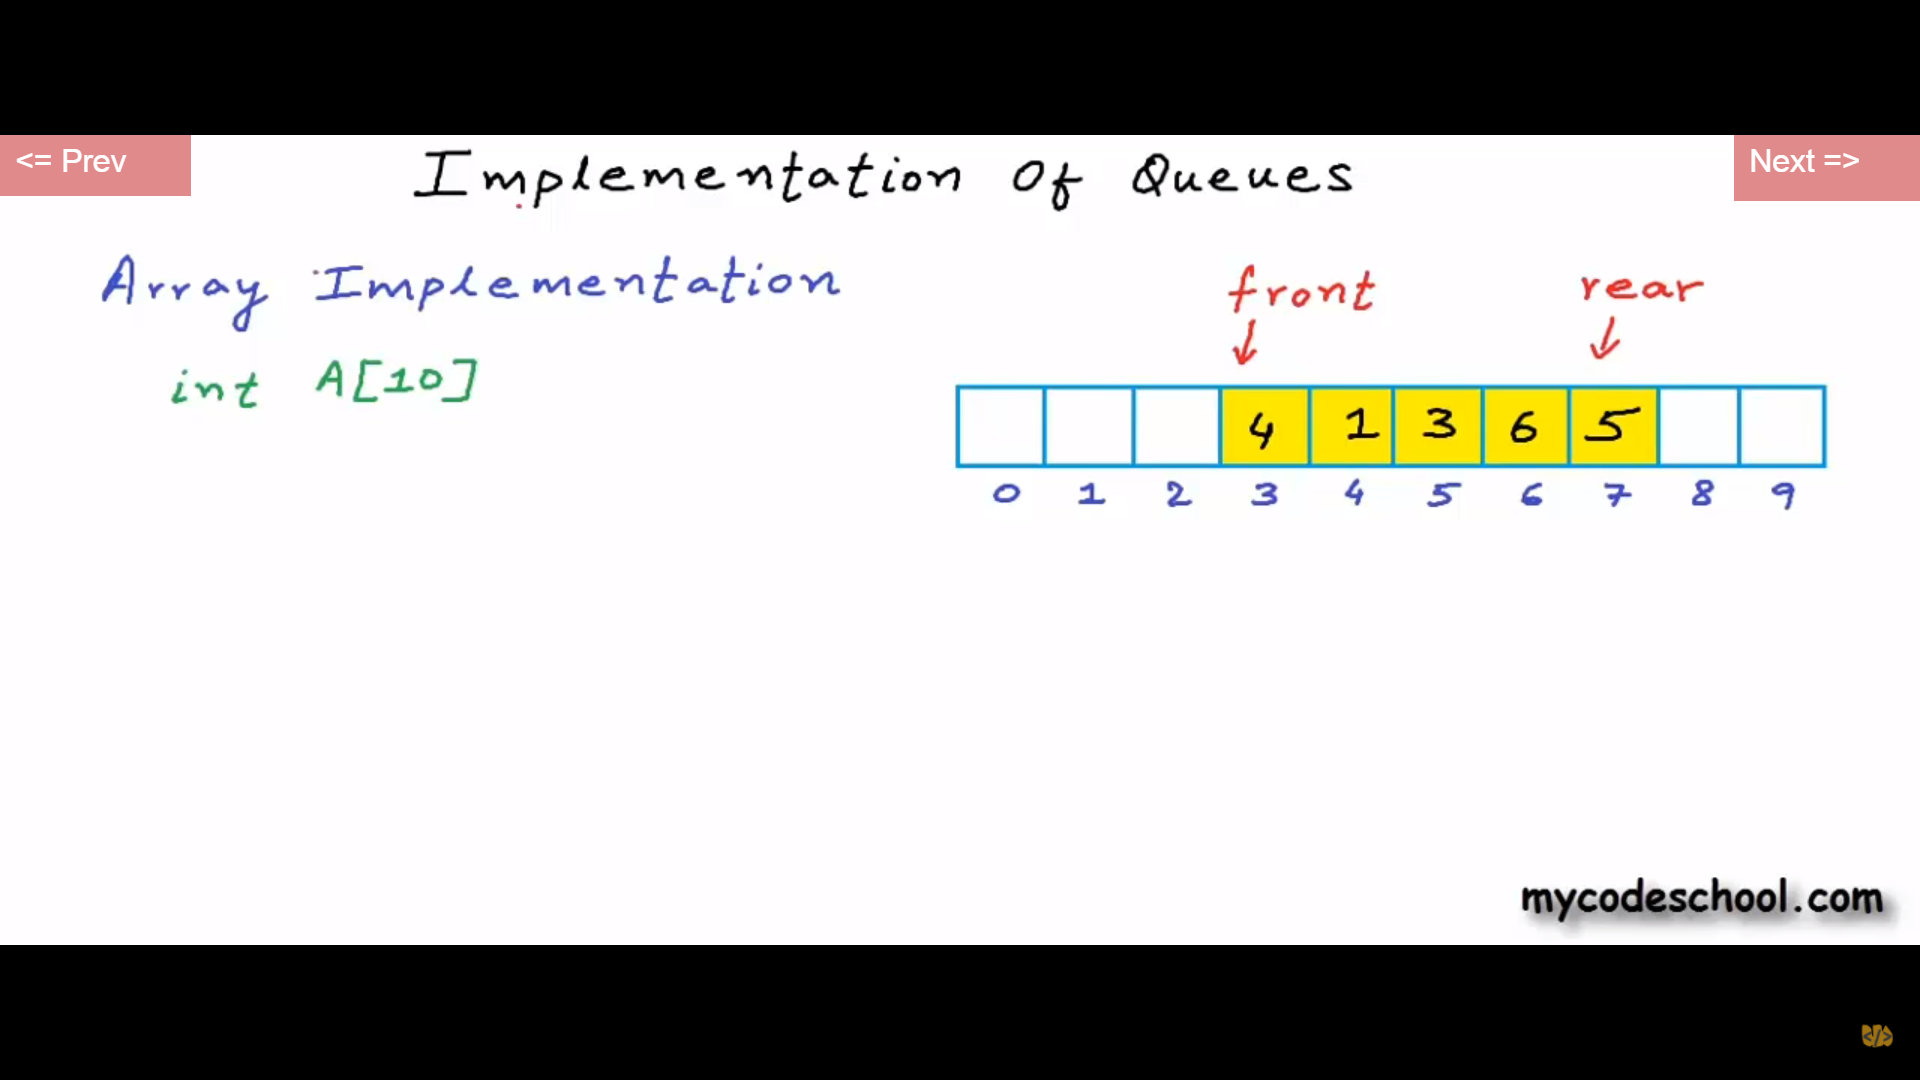 <= Prev
Next =>
Implementation Of Queues
Array Implementation
int A[10]
front rear
4 1 3 6 5
0 1 2 3 4 5 6 7 8 9
mycodeschool.com